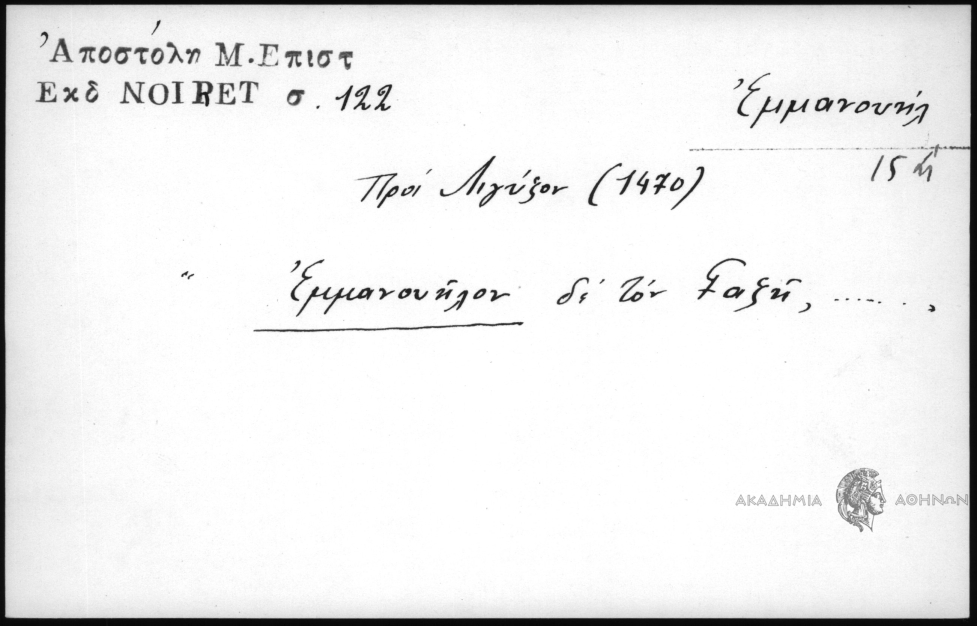 Ἀποστόλη Μ. Επιστ
Εκδ NOIRET σ. 122
Ἐμμανουήλ
15
Πρὸς Λιγύξον (1470)
" Ἐμμανουῆλον δὲ τὸν Γαξῆ, ....... ,
ΑΚΑΔΗΜΙΑ ΑΘΗΝΩΝ